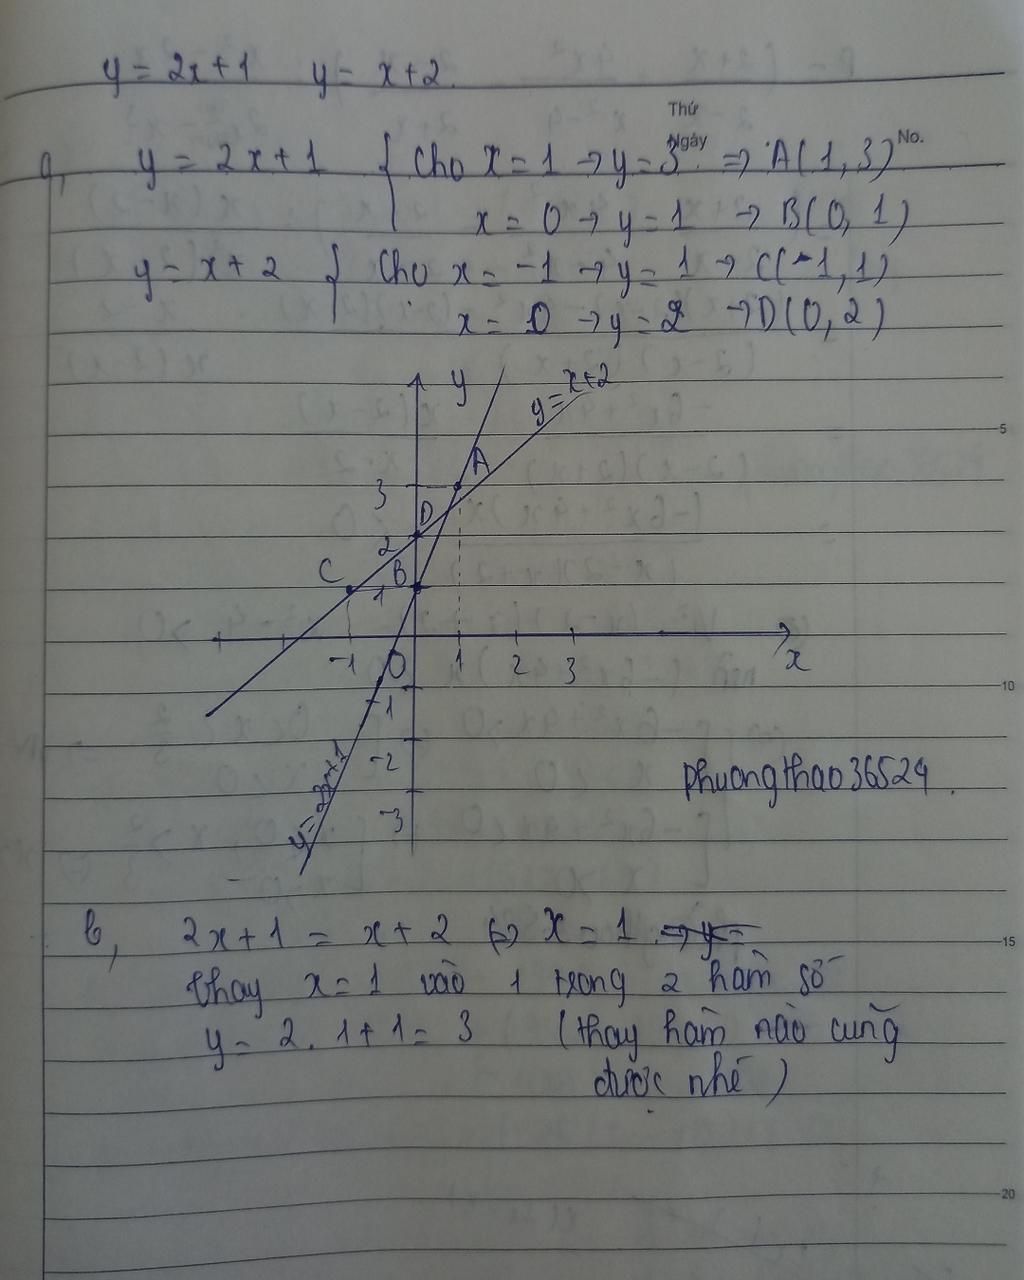 y = 2x+1 y = x+2.
Thứ
Ngày
No.
a, y = 2x+1 { Cho x = 1 → y = 3 ⇒ A(1,3)
x = 0 → y = 1 → B(0,1)
y = x+2 { Cho x = -1 → y = 1 → C(-1,1)
x = 0 → y = 2 → D(0,2)
y
y=x+2
5
A
3
D
2
C
B
1
-1 O 1 2 3 x
10
-1
-2
y=2x+1
phuongthao36524.
-3
b, 2x+1 = x+2 ⇔ x = 1 ⇒ y =
15
thay x=1 vào 1 trong 2 hàm số
y = 2.1+1 = 3 (thay hàm nào cũng
được nhé)
20